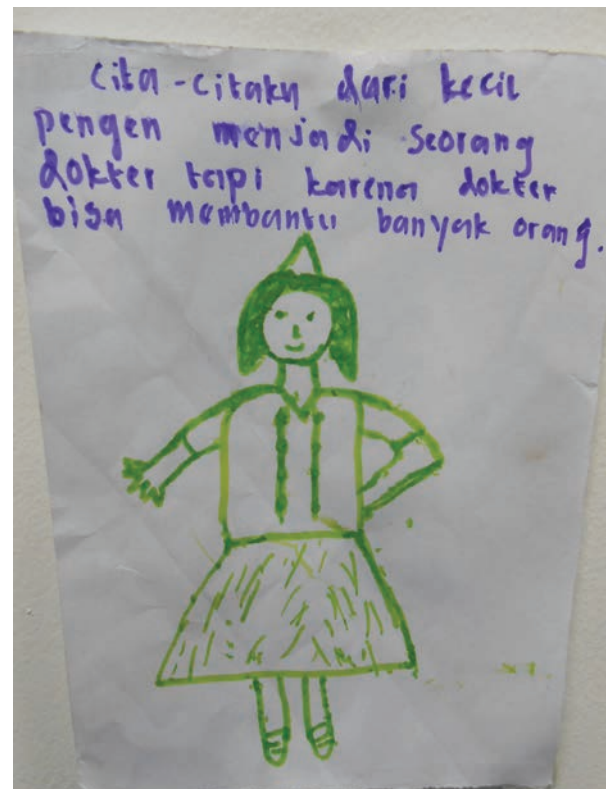 cita-citaku dari kecil
pengen menjadi seorang
dokter tapi karena dokter
bisa membantu banyak orang.